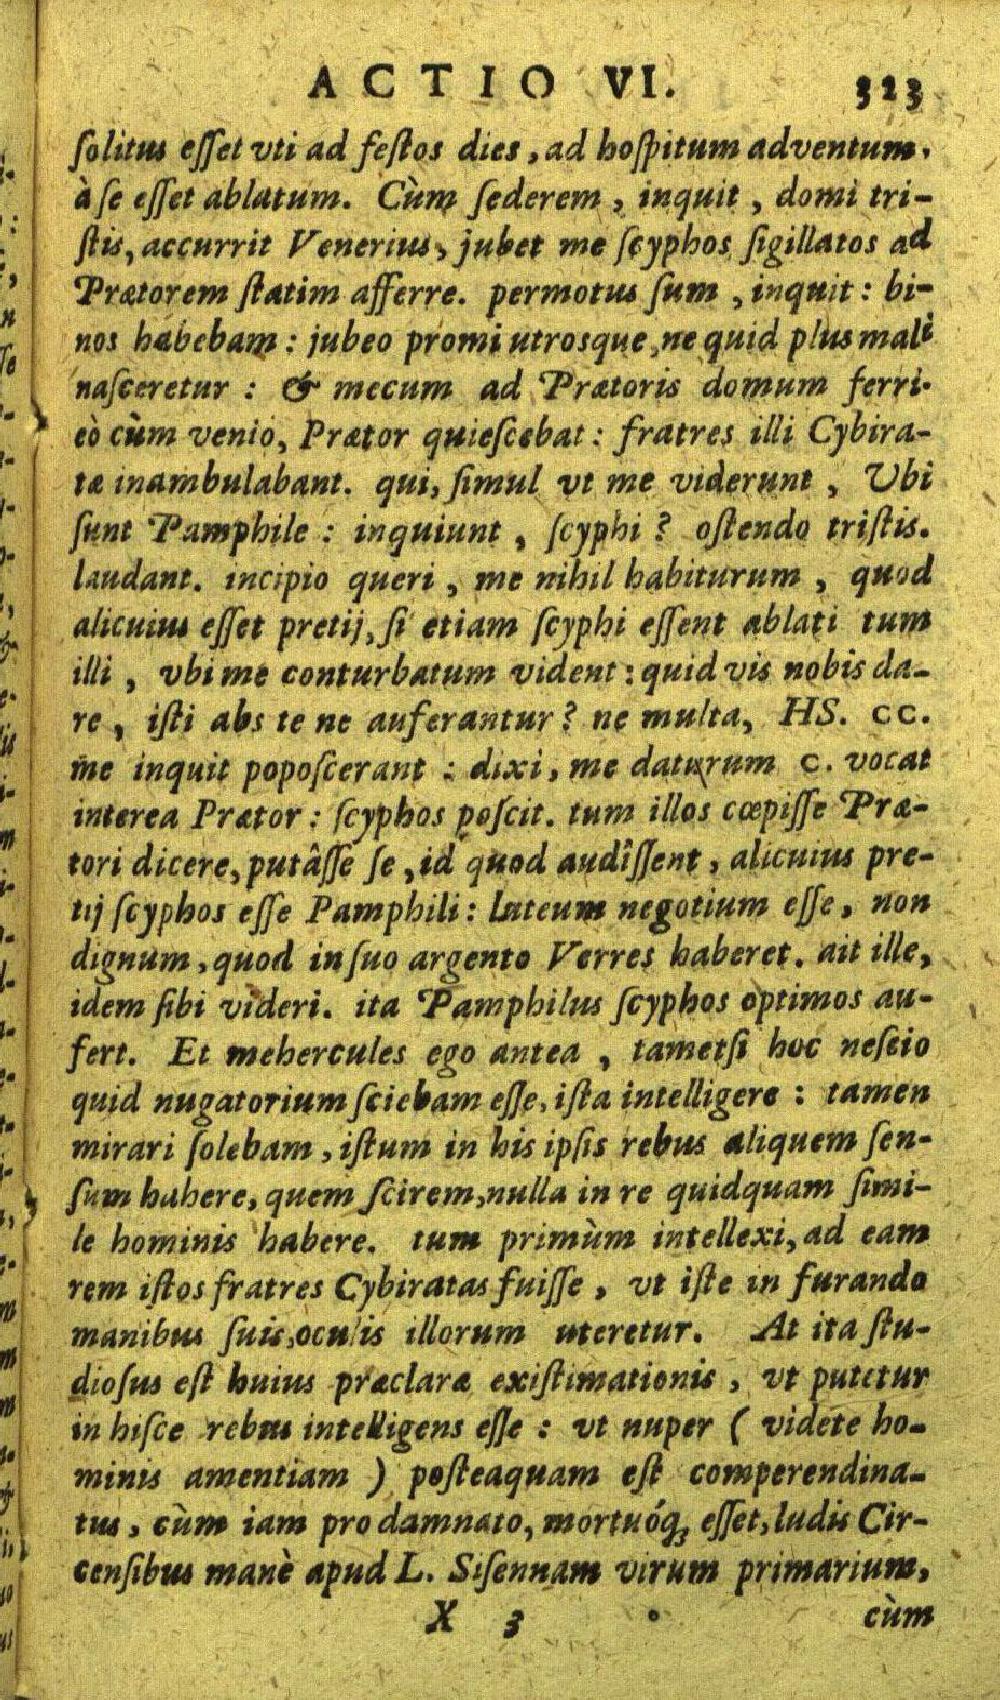 ACTIO VI. 323
ſolitus eſſet vti ad feſtos dies, ad hoſpitum adventum,
à ſe eſſet ablatum. Cùm ſederem, inquit, domi tri-
ſtis, accurrit Venerius, jubet me ſcyphos ſigillatos ad
Prætorem ſtatim afferre. permotus ſum, inquit: bi-
nos habebam: jubeo promi utrosque, ne quid plus mali
naſceretur: & mecum ad Prætoris domum ferri.
eò cùm venio, Prætor quieſcebat: fratres illi Cybira-
tæ inambulabant. qui, ſimul vt me viderunt, Ubi
ſunt Pamphile: inquiunt, ſcyphi? oſtendo triſtis.
laudant. incipio queri, me nihil habiturum, quod
alicuius eſſet pretij, ſi etiam ſcyphi eſſent ablati tum
illi, vbi me conturbatum vident: quid vis nobis da-
re, iſti abs te ne auferantur? ne multa, HS. CC.
me inquit popoſcerant: dixi, me daturum C. vocat
interea Prætor: ſcyphos poſcit. tum illos cœpiſſe Præ-
tori dicere, putâſſe ſe, id quod audîſſent, alicuius pre-
tij ſcyphos eſſe Pamphili: luteum negotium eſſe, non
dignum, quod in ſuo argento Verres haberet. ait ille,
idem ſibi videri. ita Pamphilus ſcyphos optimos au-
fert. Et mehercules ego antea, tametſi hoc neſcio
quid nugatorium ſciebam eſſe, iſta intelligere: tamen
mirari ſolebam, iſtum in his ipſis rebus aliquem ſen-
ſum habere, quem ſcirem, nulla in re quidquam ſimi-
le hominis habere. tum primùm intellexi, ad eam
rem iſtos fratres Cybiratas fuiſſe, vt iſte in furando
manibus ſuis, oculis illorum uteretur. At ita ſtu-
dioſus eſt huius præclaræ exiſtimationis, vt putetur
in hiſce rebus intelligens eſſe: vt nuper (videte ho-
minis amentiam) poſteaquam eſt comperendina-
tus, cùm iam pro damnato, mortuóq; eſſet, ludis Cir-
cenſibus manè apud L. Siſennam virum primarium,
X 3 cùm